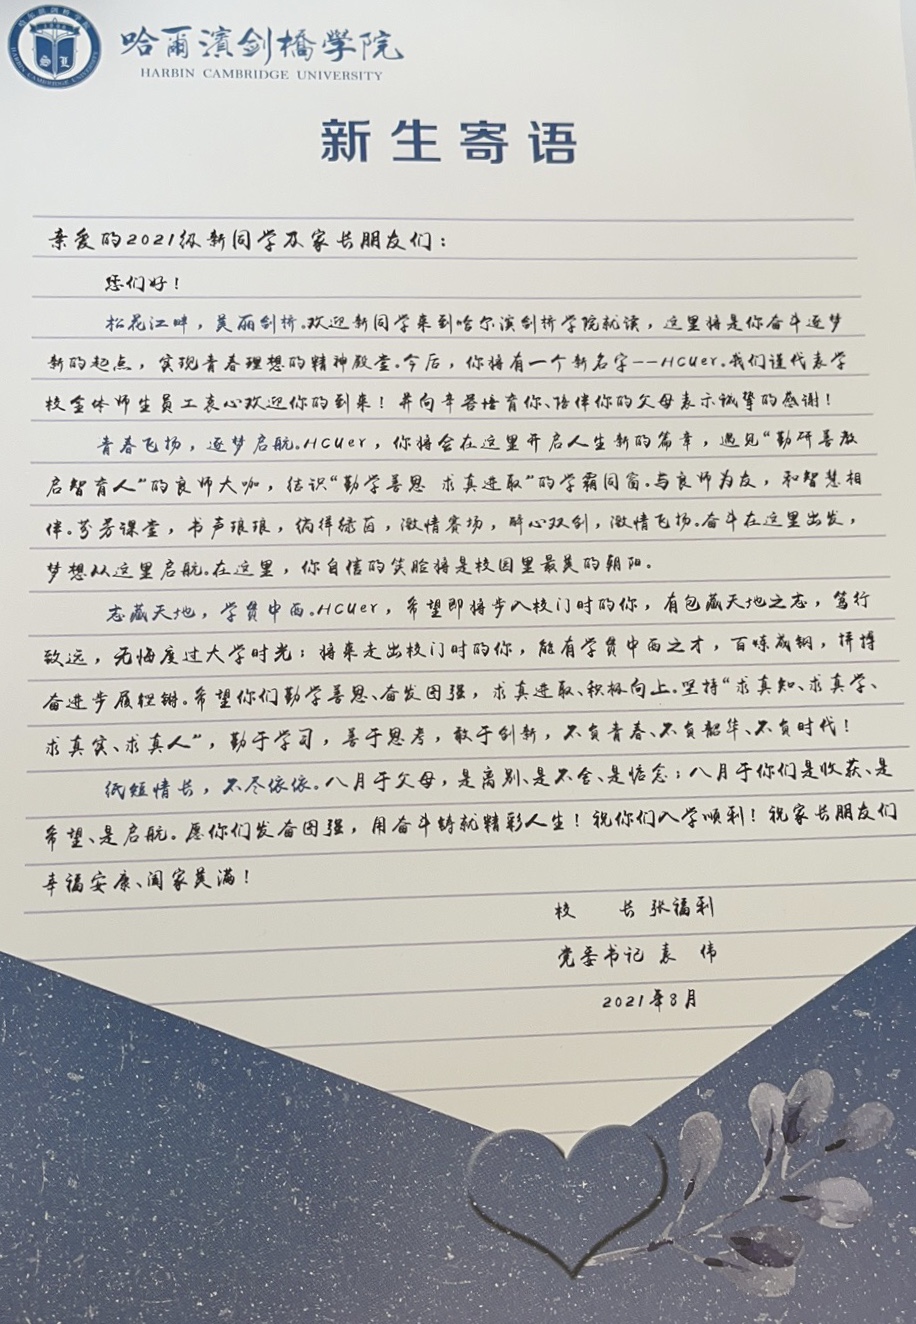 哈爾濱剑橋學院
HARBIN CAMBRIDGE UNIVERSITY
新生寄语
亲爱的2021级新同学及家长朋友们：
您们好！
松花江畔，美丽剑桥。欢迎新同学来到哈尔滨剑桥学院就读，这里将是你奋斗逐梦
新的起点，实现青春理想的精神殿堂。今后，你将有一个新名字--HCUer。我们谨代表学
校全体师生员工衷心欢迎你的到来！并向辛苦培育你、陪伴你的父母表示诚挚的感谢！
青春飞扬，逐梦启航。HCUer，你将会在这里开启人生新的篇章，遇见“勤研善教
启智育人”的良师大咖，结识“勤学善思 求真进取”的学霸同窗。与良师为友，和智慧相
伴。芬芳课堂，书声琅琅，徜徉绿茵，激情赛场，醉心双创，激情飞扬。奋斗在这里出发，
梦想从这里启航。在这里，你自信的笑脸将是校园里最美的朝阳。
志藏天地，学贯中西。HCUer，希望即将步入校门时的你，有包藏天地之志，笃行
致远，无悔度过大学时光；将来走出校门时的你，能有学贯中西之才，百炼成钢，拼搏
奋进步履铿锵。希望你们勤学善思、奋发图强，求真进取、积极向上。坚持“求真知、求真学、
求真实、求真人”，勤于学习，善于思考，敢于创新，不负青春、不负韶华、不负时代！
纸短情长，不尽依依。八月于父母，是离别、是不舍、是惦念；八月于你们是收获、是
希望、是启航。愿你们发奋图强，用奋斗铸就精彩人生！祝你们入学顺利！祝家长朋友们
幸福安康、阖家美满！
校 长 张福利
党委书记 袁 伟
2021年8月